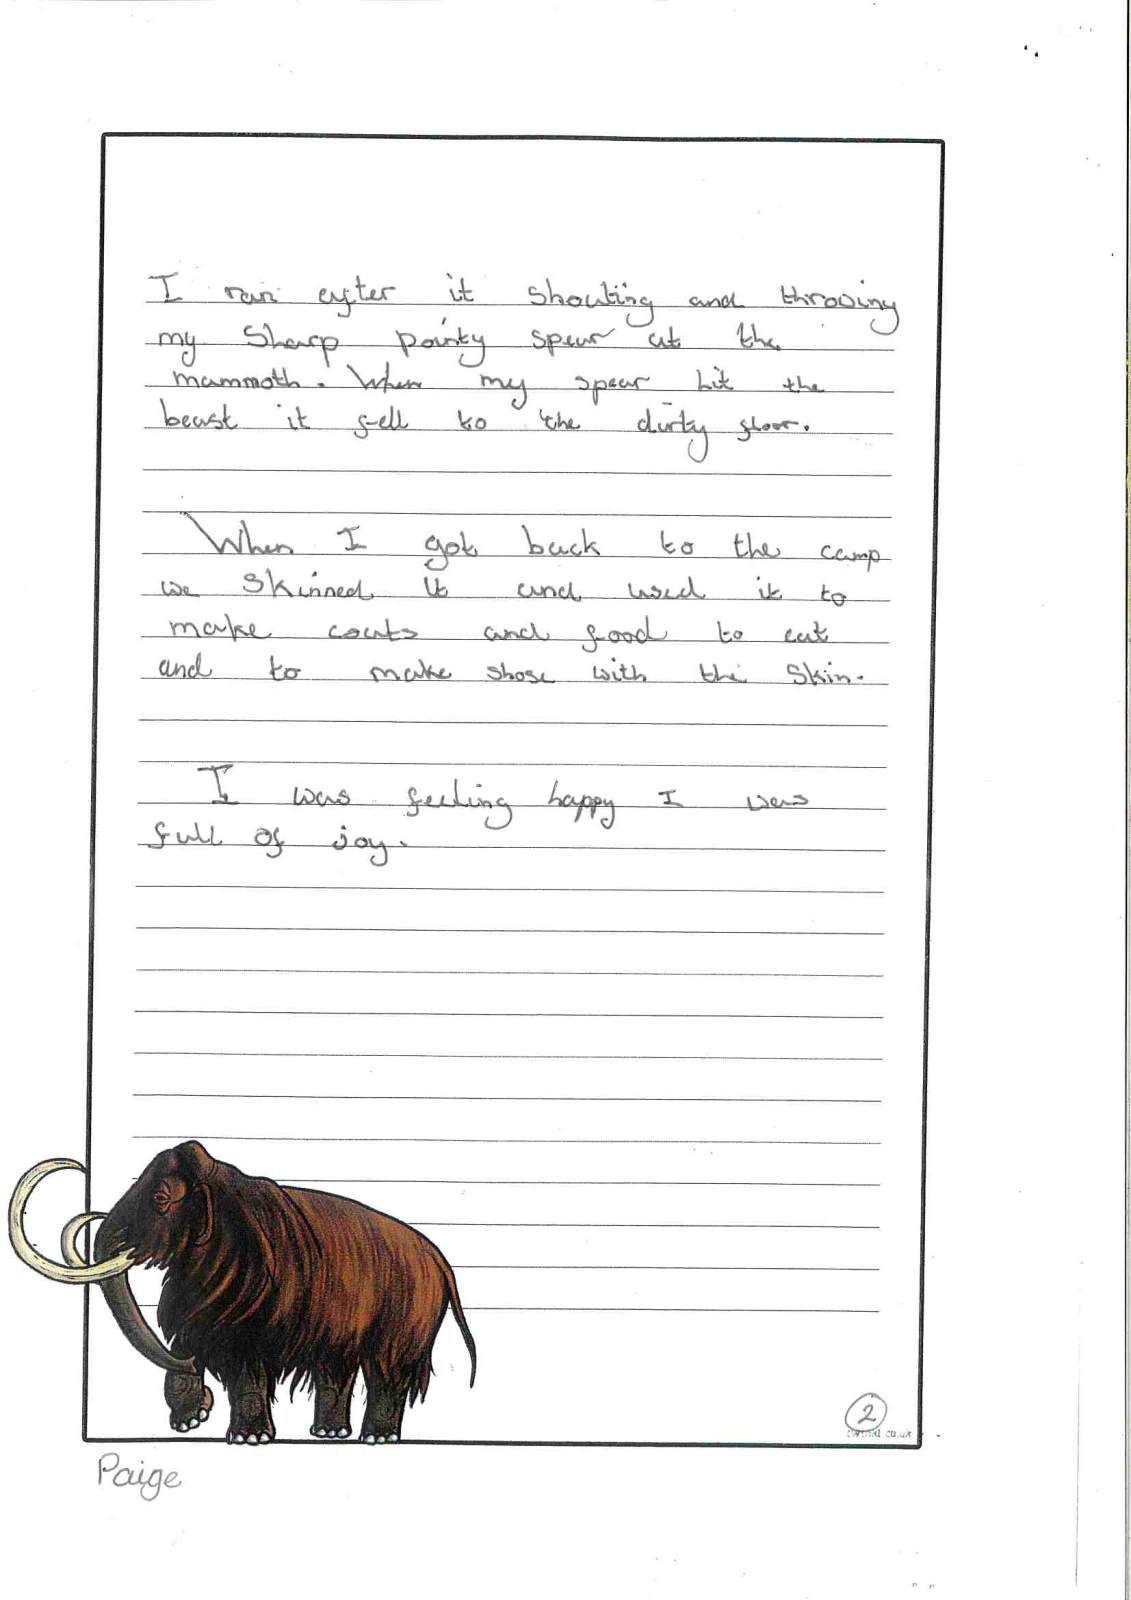 I ran after it shouting and throwing
my Sharp pointy spear at the
mammoth. When my spear hit the
beast it fell to the dirty floor.
When I got back to the camp
we Skinned it and used it to
make coats and food to eat
and to make shose with the Skin.
I was feeling happy I was
full of joy.
2
twinkl.co.uk
Paige